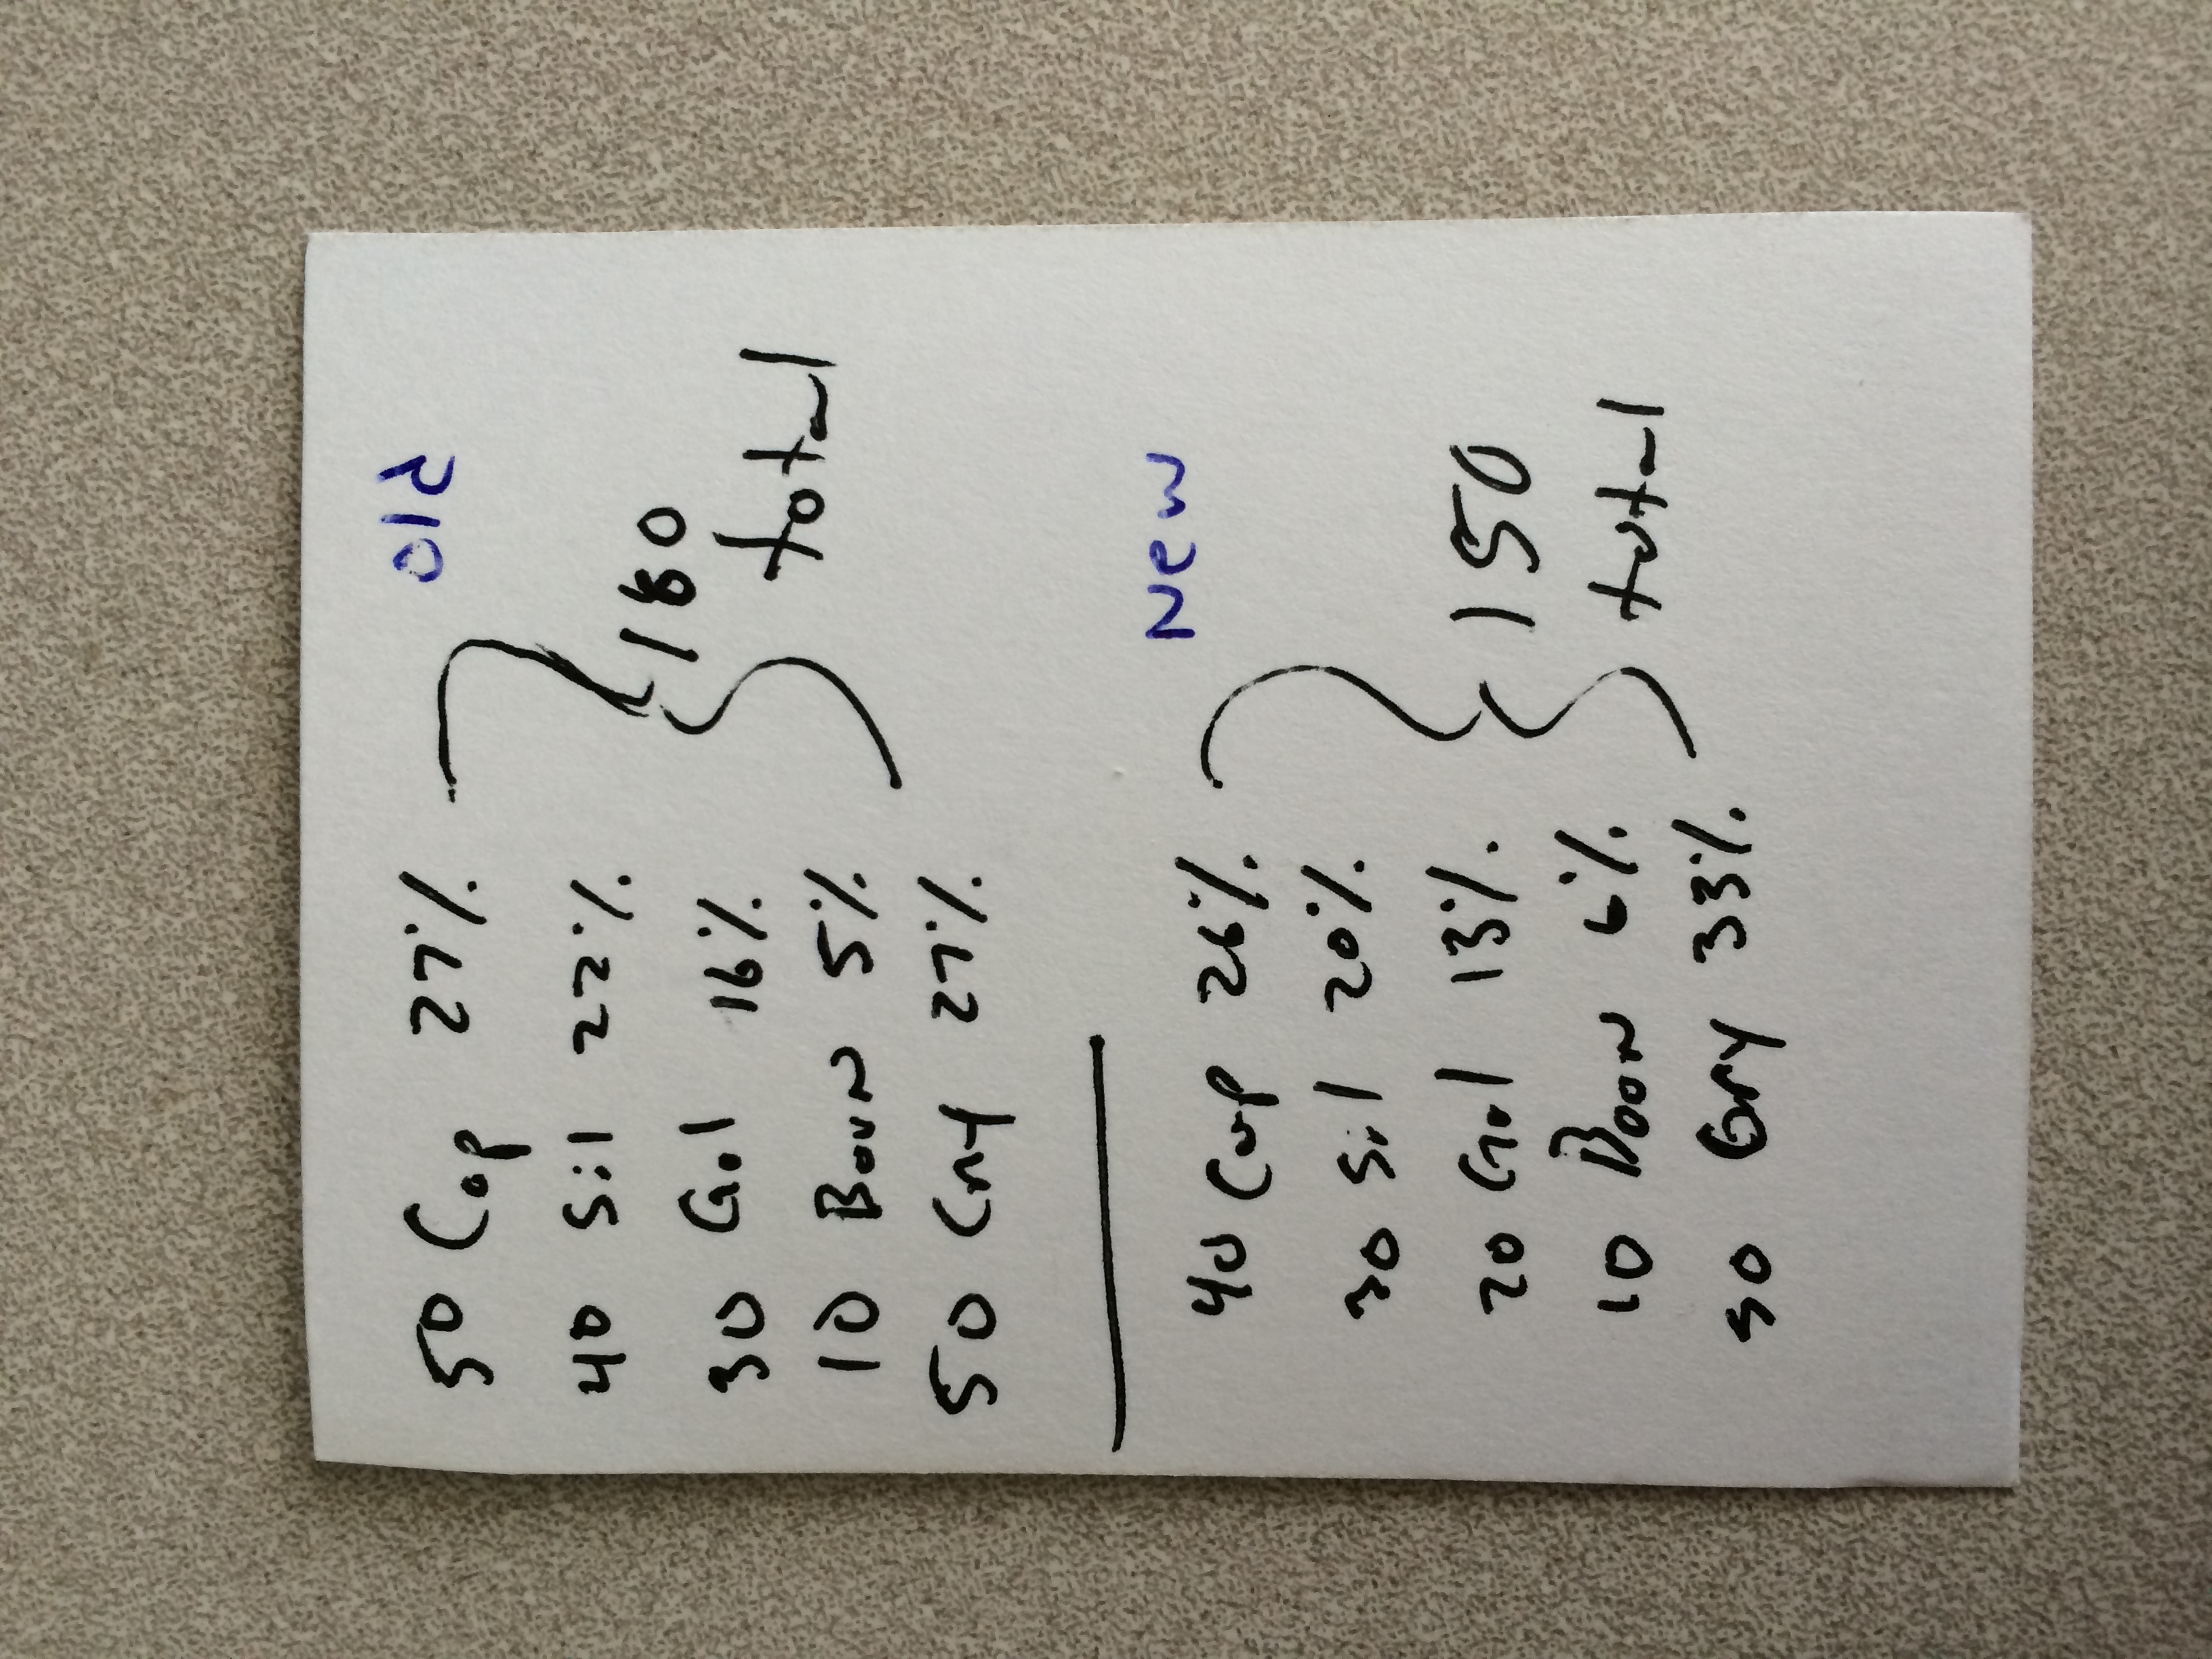 Old
50 Cop 27%
40 Sil 22%
30 Gol 16%
10 Boon 5%
50 Cry 27%
180
total
New
40 Cop 26%
30 Sil 20%
20 Gol 13%
10 Boon 6%
50 Gry 33%
150
total